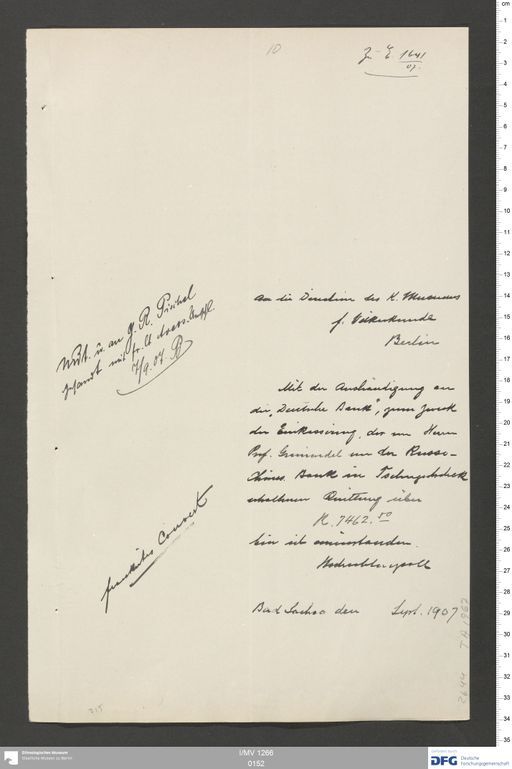 10
Zu E 1641/07.
An die Direction des K. Museums
f. Völkerkunde
Berlin
Mit der Aushändigung an
die „Deutsche Bank“, zum Zweck
der Einkassirung, der von Herrn
Prof. Grünwedel von der Russo-
Chines. Bank in Tschugutschak
erhaltenen Quittung über
R. 7462.50
bin ich einverstanden.
Hochachtungsvoll
Bad Sachsa den Sept. 1907
u. an g. R. Pischel
gesandt mit
7/9.07.
frankirtes Couvert
215
TA 1967
Ethnologisches Museum
Staatliche Museen zu Berlin
I/MV 1266
0152
DFG Deutsche
Forschungsgemeinschaft
cm
1
2
3
4
5
6
7
8
9
10
11
12
13
14
15
16
17
18
19
20
21
22
23
24
25
26
27
28
29
30
31
32
33
34
35